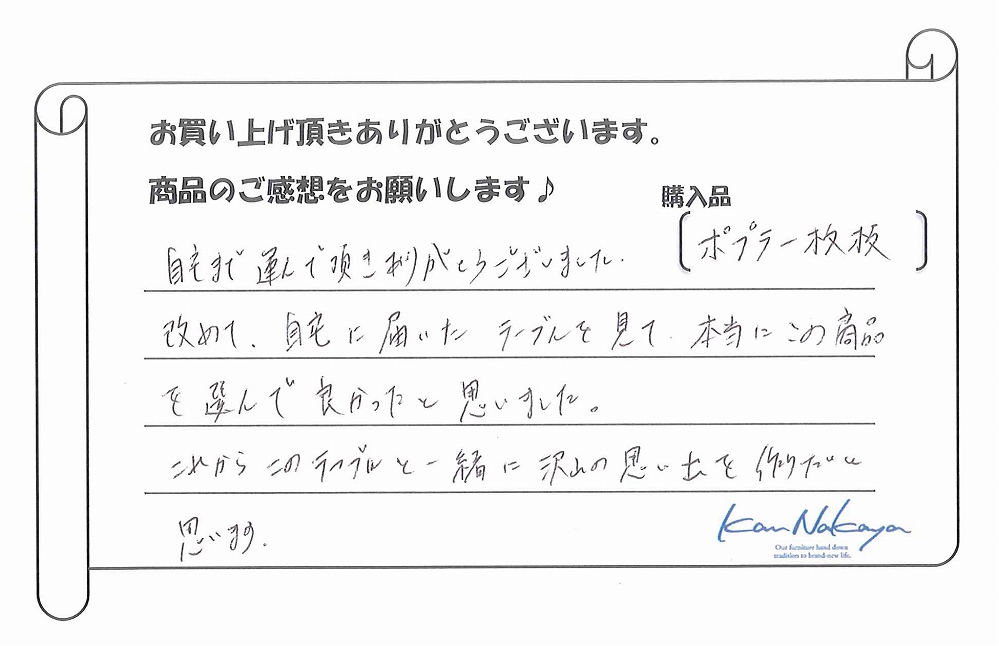 お買い上げ頂きありがとうございます。
商品のご感想をお願いします♪
購入品
ポプラ一枚板
自宅まで運んで頂きありがとうございました.
改めて、自宅に届いたテーブルを見て、本当にこの商品
を選んで良かったと思いました。
これからこのテーブルと一緒に沢山の思い出を作りたいと
思います.
Kan Nakaya
Our furniture hand down
tradition to brand-new life.